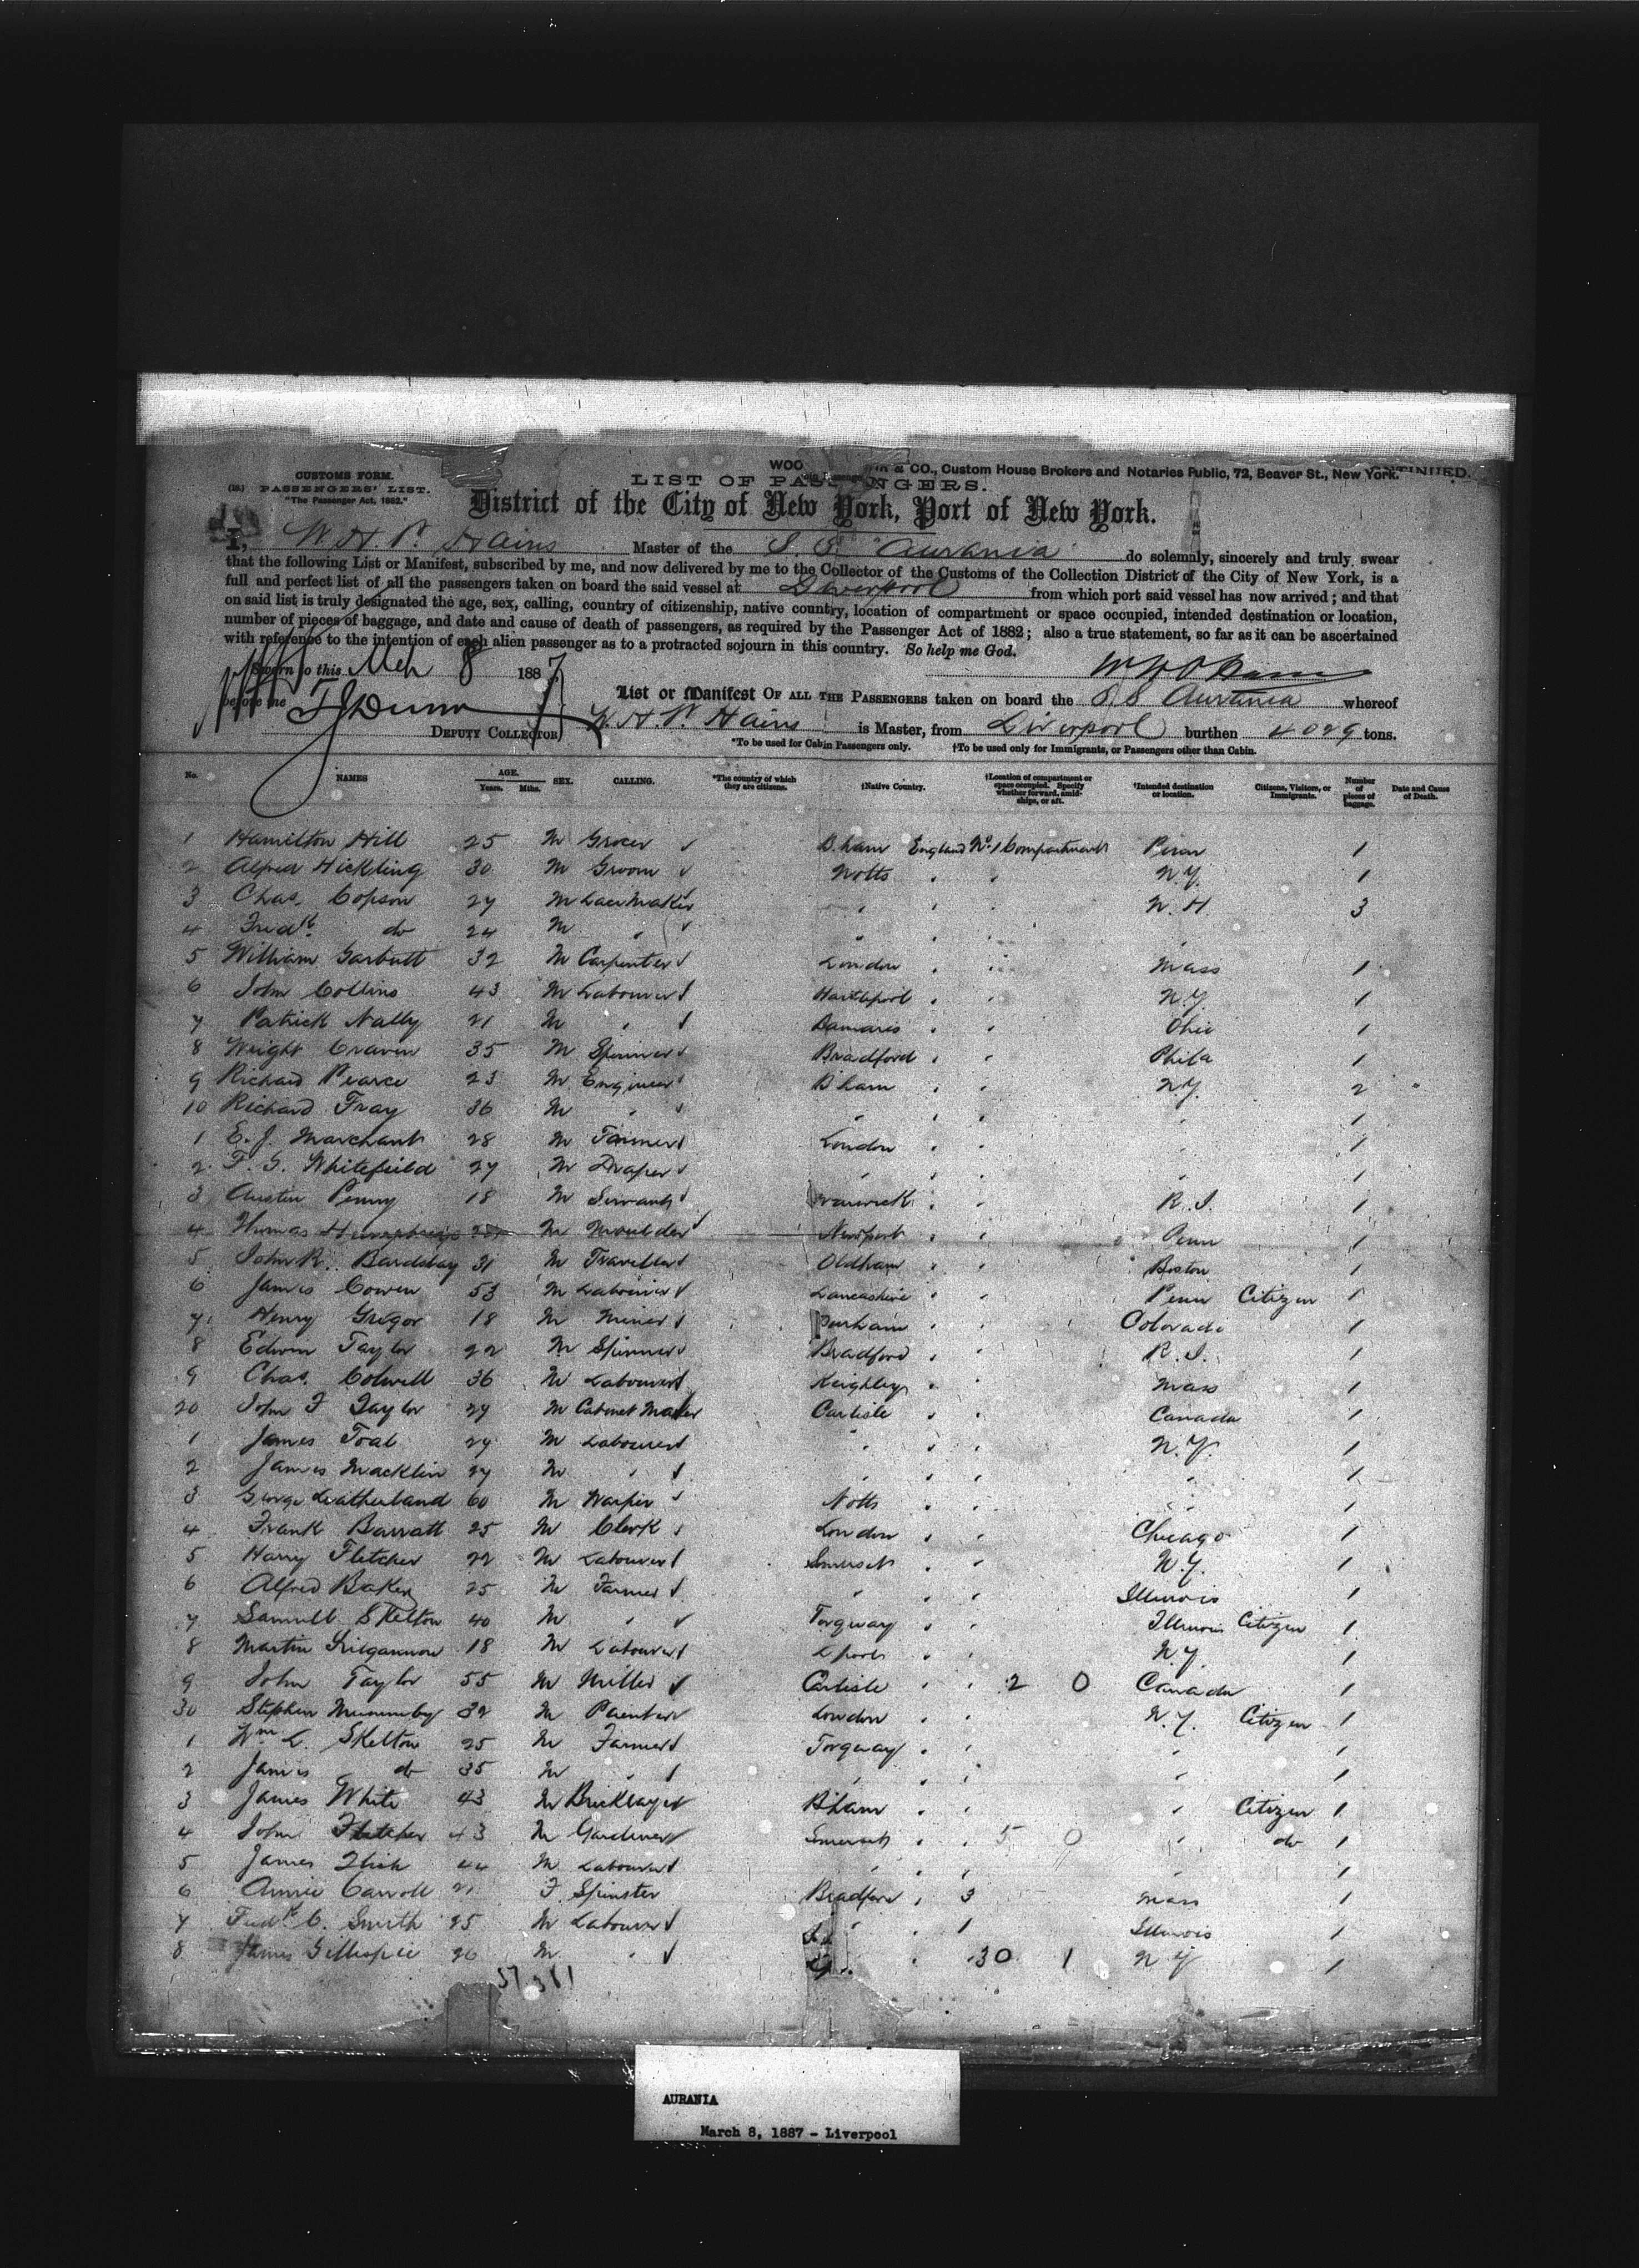 WOO & CO., Custom House Brokers and Notaries Public, 72, Beaver St., New York.
CUSTOMS FORM.
PASSENGERS' LIST.
"The Passenger Act, 1882."
LIST OF PASSENGERS.
District of the City of New York, Port of New York.
I, W. H. P. Hains Master of the S. S. "Aurania" do solemnly, sincerely and truly swear
that the following List or Manifest, subscribed by me, and now delivered by me to the Collector of the Customs of the Collection District of the City of New York, is a
full and perfect list of all the passengers taken on board the said vessel at Liverpool from which port said vessel has now arrived; and that
on said list is truly designated the age, sex, calling, country of citizenship, native country, location of compartment or space occupied, intended destination or location,
number of pieces of baggage, and date and cause of death of passengers, as required by the Passenger Act of 1882; also a true statement, so far as it can be ascertained
with reference to the intention of each alien passenger as to a protracted sojourn in this country. So help me God.
Sworn to this Mch 8 1887
List or Manifest OF ALL THE PASSENGERS taken on board the S S Aurania whereof
before me
DEPUTY COLLECTOR
W. H. P. Hains is Master, from Liverpool burthen 4029 tons.
*To be used for Cabin Passengers only. †To be used only for Immigrants, or Passengers other than Cabin.
No. NAMES AGE. Years. Mths. SEX. CALLING. *The country of which they are citizens. †Native Country. †Location of compartment or space occupied. Specify whether forward, amidships, or aft. †Intended destination or location. Citizens, Visitors, or Immigrants. Number of pieces of baggage. Date and Cause of Death.
1 Hamilton Hill 25 M Grocer B.ham England No. 1 Compartment 1
2 Alfred Hickling 30 M Groom Notts " " N.Y. 1
3 Chas. Copson 27 M Lacemaker " " " N. H. 3
4 Fredk. do 24 M " " " " "
5 William Garbutt 32 M Carpenter London " " Mass 1
6 John Collins 43 M Labourer Hartlepool " " N.Y. 1
7 Patrick Nally 21 M " " " Ohio 1
8 Wright Craven 35 M Spinner Bradford " " Phila 1
9 Richard Pearce 23 M Engineer B'ham " " N.Y. 2
10 Richard Fray 36 M " " " " " 1
1 E. J. Marchant 28 M Farmer London " " " 1
2 F. G. Whitefield 27 M Draper " " " " 1
3 Austin Penny 18 M Servant Warwick " " R. I. 1
4 Thomas Humphreys M Moulder Newport " " Penn 1
5 John R. Bardsley 31 M Traveller Oldham " " Boston 1
6 James Cowen 53 M Labourer Lancashire " " Penn Citizen 1
7 Henry Gregor 18 M Miner Durham " " Colorado 1
8 Edwin Taylor 22 M Spinner Bradford " " R. I. 1
9 Chas. Colwell 36 M Labourer Keighley " " Mass 1
20 John F Taylor 27 M Cabinet Maker Carlisle " " Canada 1
1 James Toal 27 M Labourer " " " N.Y. 1
2 James Macklin 27 M " " " " " 1
3 George Leatherland 60 M Warper Notts " " " 1
4 Frank Barratt 25 M Clerk London " " Chicago 1
5 Harry Fletcher 22 M Labourer Somerset " " N.Y. 1
6 Alfred Baker 25 M Farmer " " " Illinois 1
7 Samuel Skelton 40 M " Torquay " " Illinois Citizen 1
8 Martin Kilgannon 18 M Labourer L'pool " " N.Y. 1
9 John Taylor 55 M Miller Carlisle " " 2 0 Canada 1
30 Stephen Mummby 32 M Painter London " " N.Y. Citizen 1
1 Wm L. Skelton 25 M Farmer Torquay " " " 1
2 James do 35 M " " " " " 1
3 James White 43 M Bricklayer B'ham " " " Citizen 1
4 John Fletcher 43 M Gardener Somerset " " 5 0 " do 1
5 James 44 M Labourer " " " " 1
6 Annie Carroll 21 F Spinster Bradford " 3 Mass 1
7 Fredk C. Smith 25 M Labourer " 1 Illinois 1
8 James Gillespie 26 M " " 30 1 N Y 1
AURANIA
March 8, 1887 - Liverpool